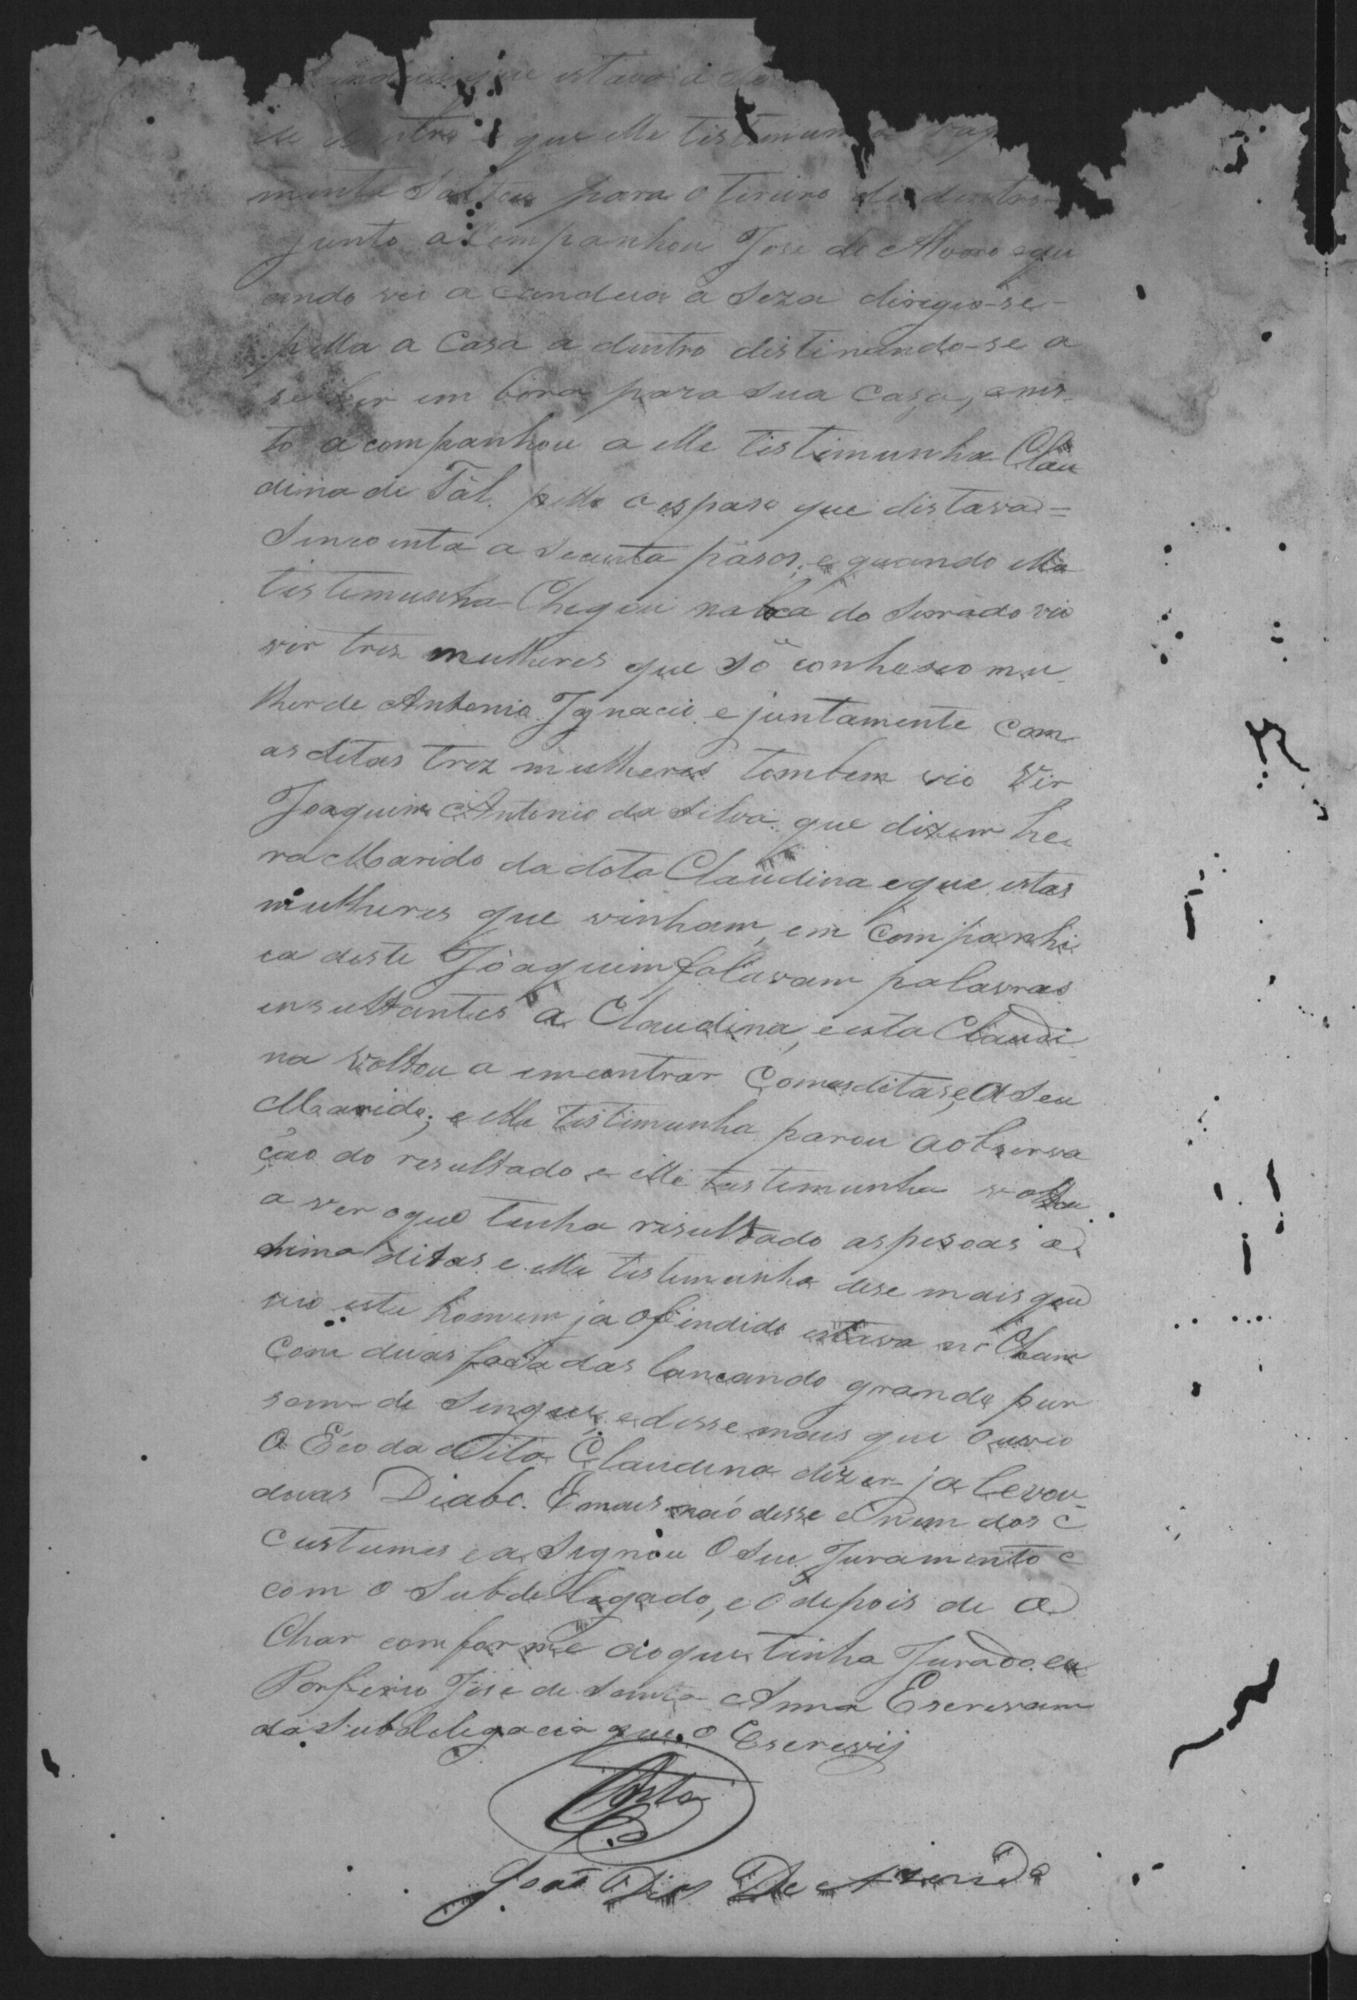 que estava a
de dentro e que elle testemunha
mente saltou para o tireiro de dentro
junto acompanhou Jose de Alvaro e qu
ando vio a candeia a seza dirigio-se-
pella a Casa a dentro distinando-se a
se hir em bora para sua Casa, e nis-
to acompanhou a elle tistimunha Clau
dina de Tál. pello o espaso que distava=
Sincoenta a secenta pasos, e quando elle
tistimunha Chegou na boca do serrado vio
vir tres mulheres que só conheseo mu-
lher de Antonio Ignacio, e juntamente com
as ditas trez mulheres tombem vio vir
Joaquim Antonio da Silva que dizem he-
ra Marido da dota Claudina e que estas
mulheres que vinham, em Companhi
ca deste Joaquim falavam palavras
insultantes a Claudina, e esta Claudi
na voltou a emcontrar Com as ditas, e a seu
Marido; e elle tistimunha parou a observa
ção do resultado e elle testemunha voltou
a ver o que tinha risultado as pesoas a
sima ditas e elle tistimunha dese mais que
vio este homem ja ofindido estava no Cham
Com duas facadas lancando grande pur
sam de Singue, e disse mais que ouvio
O Éco da dita Claudina dizer ja levou-
douas Diabo. E mais naó disse e nem dos c
custumes e a Signou O Seu Juramento c
com o Subdellegado, e ó depois de a
Char comforme ao que tinha Jurado, eu
Porfirio Jose de Santa Anna Escrevam
da Subdelegacia que o Escrevij
Costa
João Dias De Azevedo